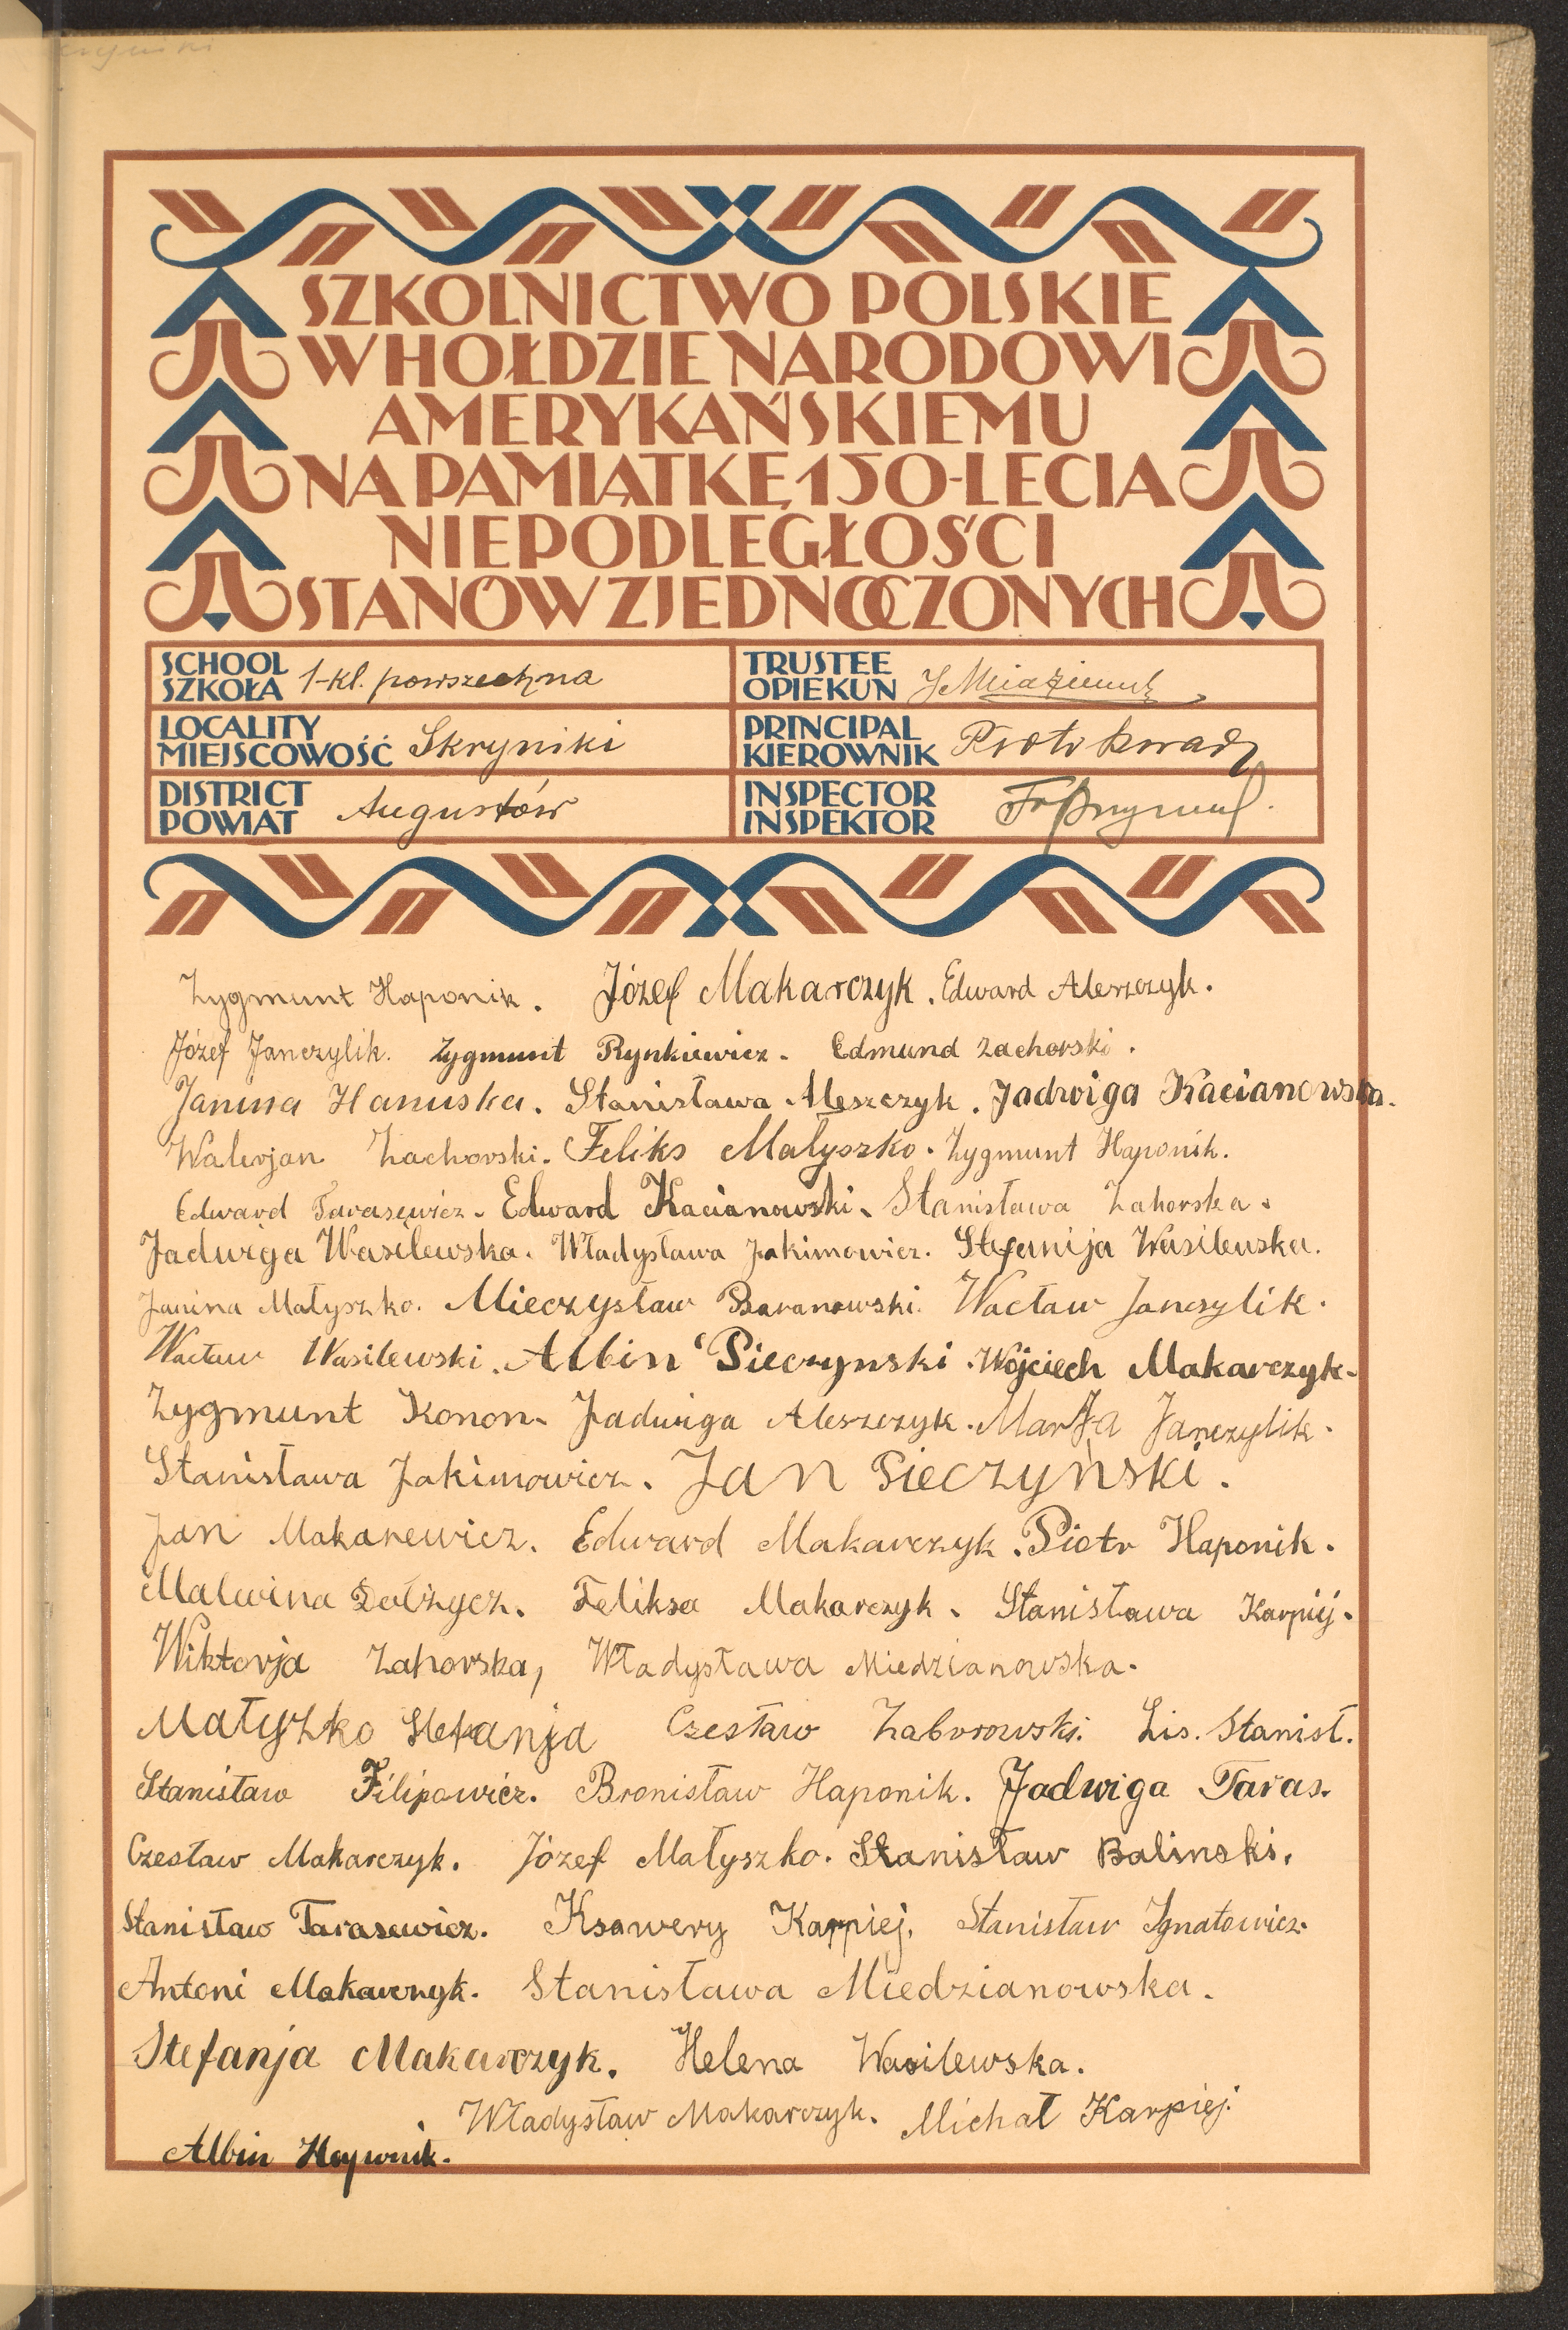 SZKOLNICTWO POLSKIE
W HOŁDZIE NARODOWI
AMERYKAŃSKIEMU
NA PAMIĄTKĘ 150-LECIA
NIEPODLEGŁOŚCI
STANÓW ZJEDNOCZONYCH
SCHOOL
SZKOŁA 1-kl. powszechna
TRUSTEE
OPIEKUN
LOCALITY
MIEJSCOWOŚĆ Skryniki
PRINCIPAL
KIEROWNIK Piotr
DISTRICT
POWIAT Augustów
INSPECTOR
INSPEKTOR
Zygmunt Haponik. Józef Makarczyk. Edward Aleszczyk.
Józef Janczylik. Zygmunt Rynkiewicz. Edmund Zachorski.
Janina Hanuska. Stanisława Aleszczyk. Jadwiga Kacianowska.
Walerjan Zachorski. Feliks Małyszko. Zygmunt Haponik.
Edward Tarasewicz. Edward Kacianowski. Stanisława Zahorska.
Jadwiga Wasilewska. Władysława Jakimowicz. Stefanija Wasilewska.
Janina Małyszko. Mieczysław Baranowski. Wacław Janczylik.
Wacław Wasilewski. Albin Pieczynski. Wojciech Makarczyk.
Zygmunt Konon. Jadwiga Aleszczyk. Marja Janczylik.
Stanisława Jakimowicz. Jan Pieczyński.
Jan Makarewicz. Edward Makarczyk. Piotr Haponik.
Malwina Dołżycz. Feliksa Makarczyk. Stanisława Karpij.
Wiktorja Zahorska, Władysława Miedzianowska.
Małyszko Stefanja Czesław Zaborowski. Lis. Stanisł.
Stanisław Filipowicz. Bronisław Haponik. Jadwiga Taras.
Czesław Makarczyk. Józef Małyszko. Stanisław Balinski.
Stanisław Tarasewicz. Ksawery Karpiej. Stanisław Ignatowicz.
Antoni Makarczyk. Stanisława Miedzianowska.
Stefanja Makarczyk. Helena Wasilewska.
Władysław Makarczyk. Michał Karpiej.
Albin